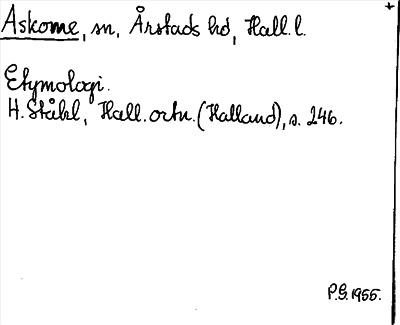 Askome, sn, Årstads hd, Hall. l.
Etymologi.
H. Ståhl, Hall. ortn. (Halland), s. 246.
P.G. 1955.